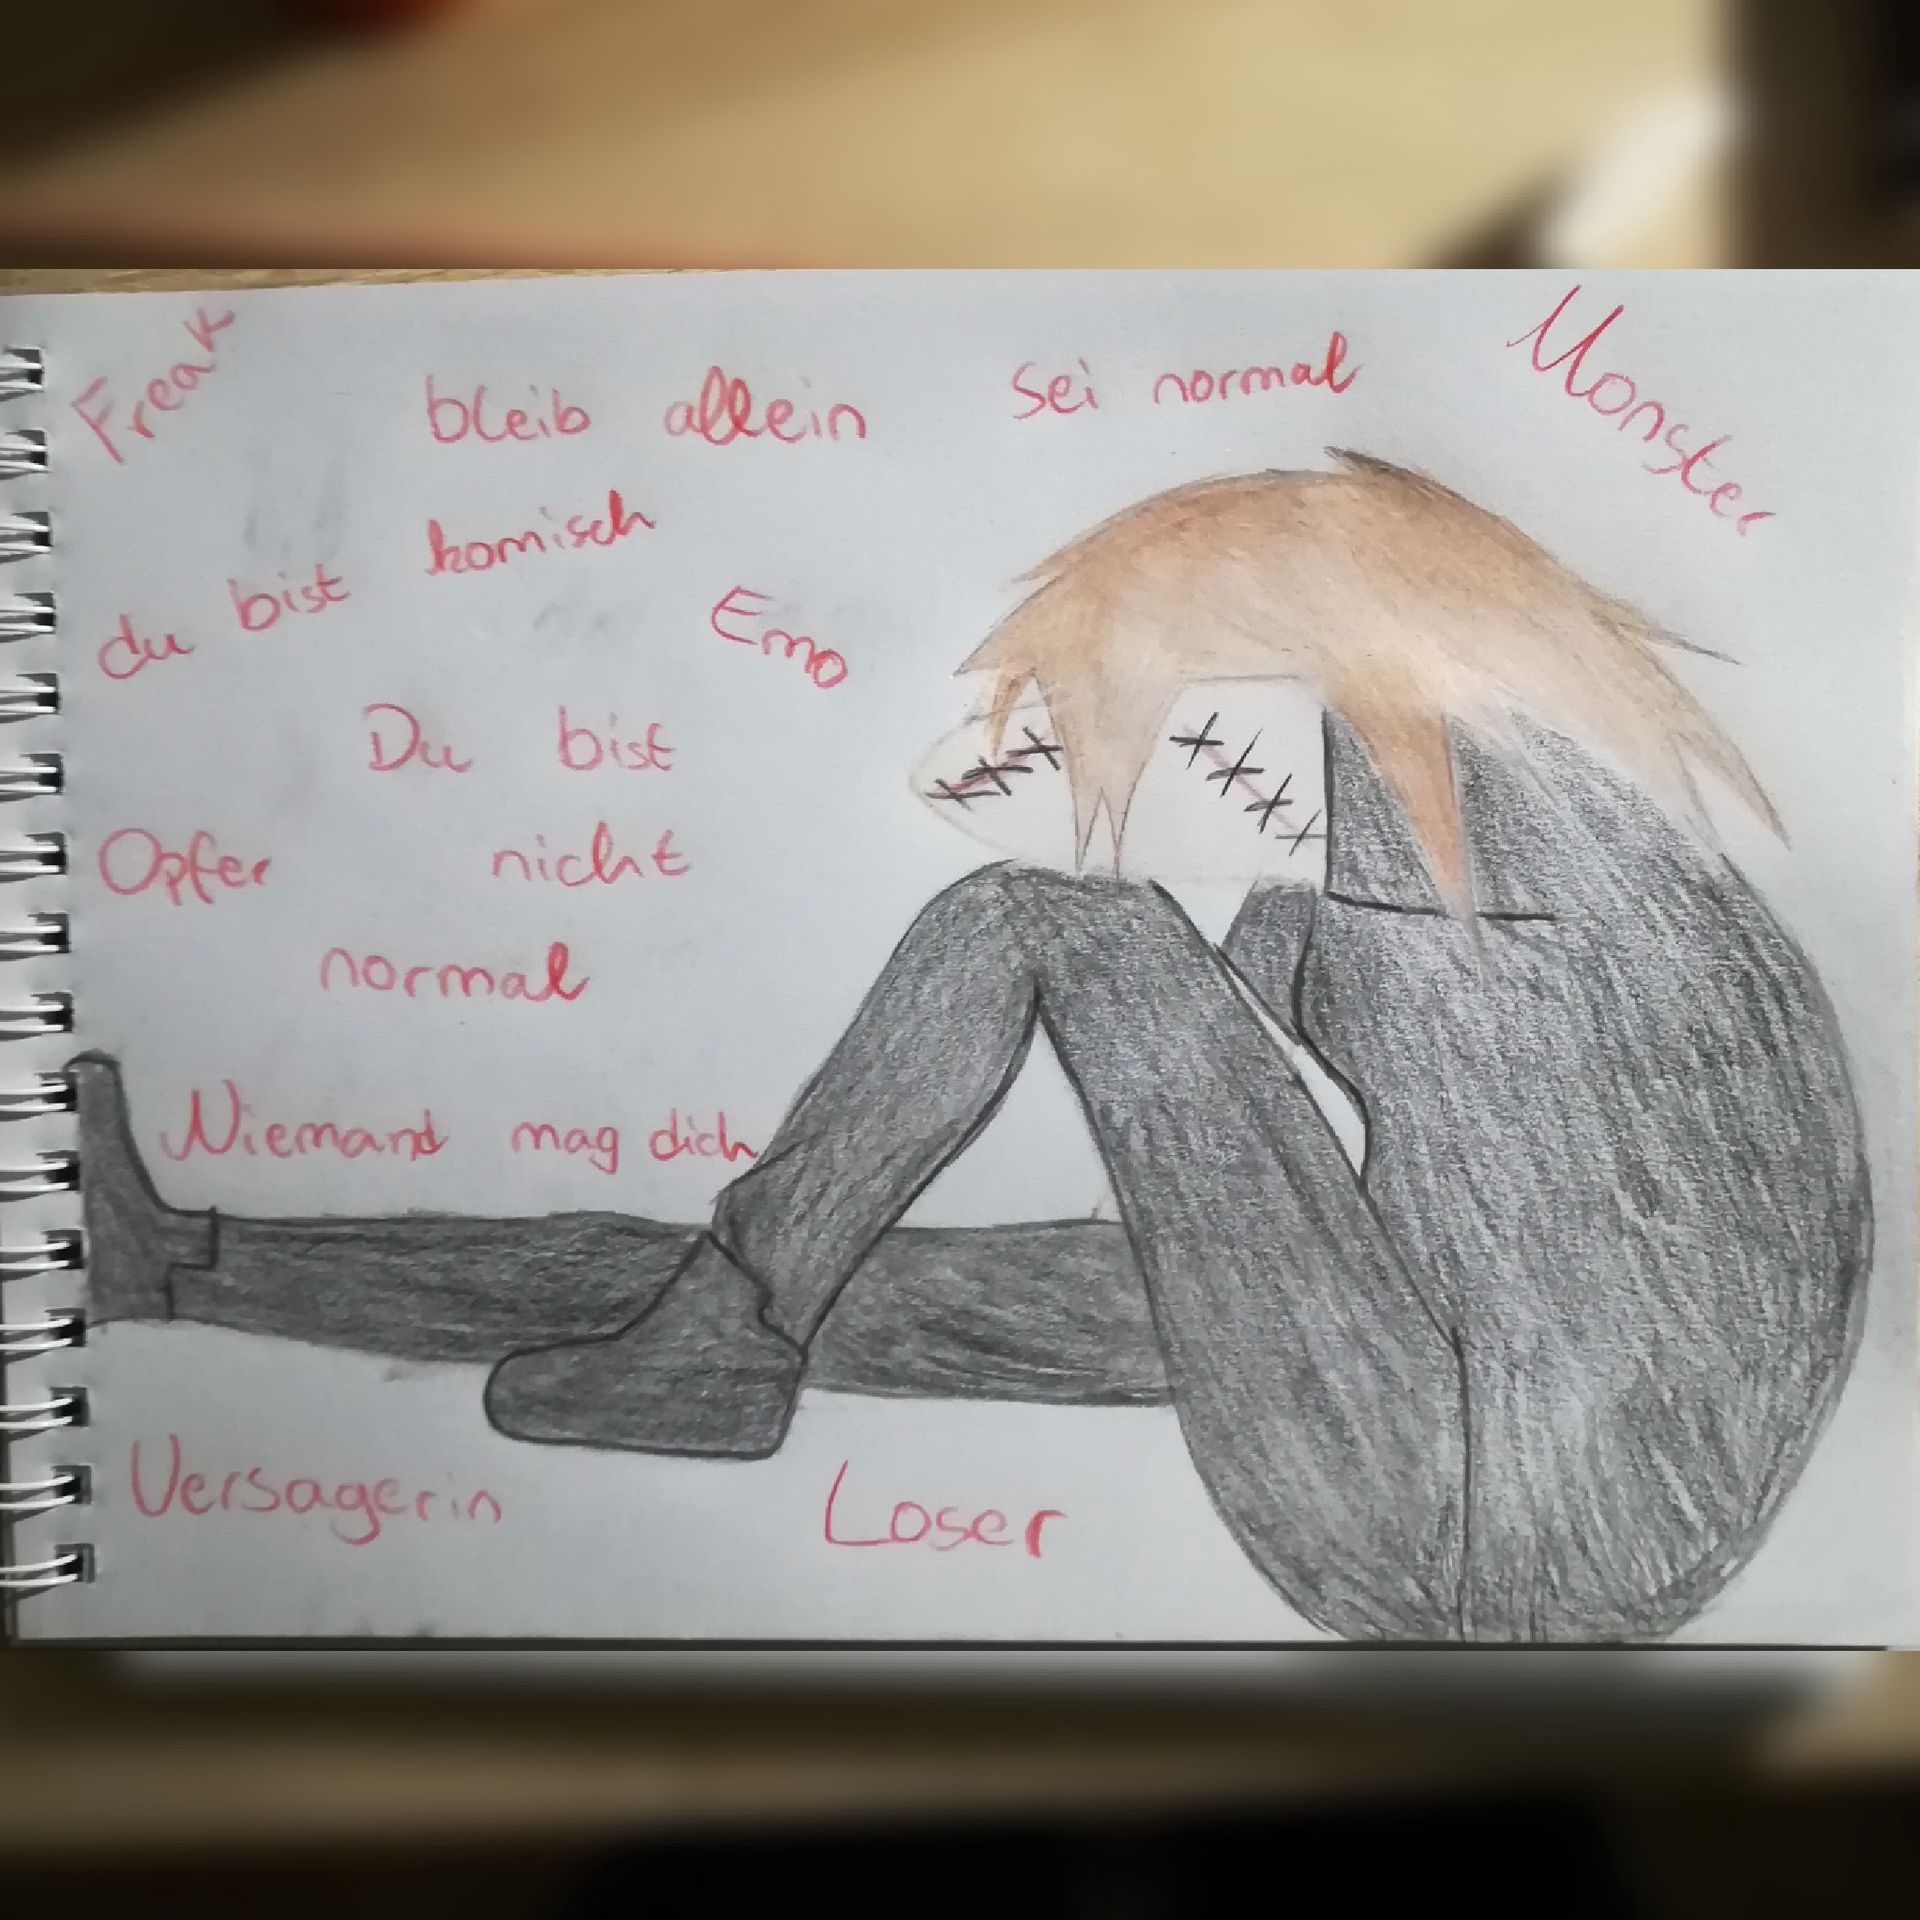 Freak
bleib allein
sei normal
Monster
du bist komisch
Emo
Du bist
nicht
normal
Opfer
Niemand mag dich
Versagerin
Loser